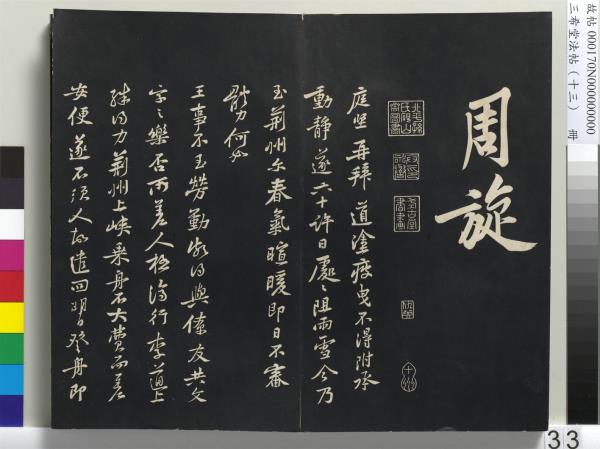 故帖 000170N000000000
三希堂法帖(十三) 冊
周旋
庭堅再拜 道塗疲曳不得附承
動靜遂六十許日處〻阻雨雪今乃
至荊州尔春氣暄暖即日不審
體力何如
王事不至勞勤頗得與僚友共文
字之樂否所差人極濟行李道上
殊得力荊州上峽乘舟不大費而差
安便遂不須人故遣回明日登舟即
33